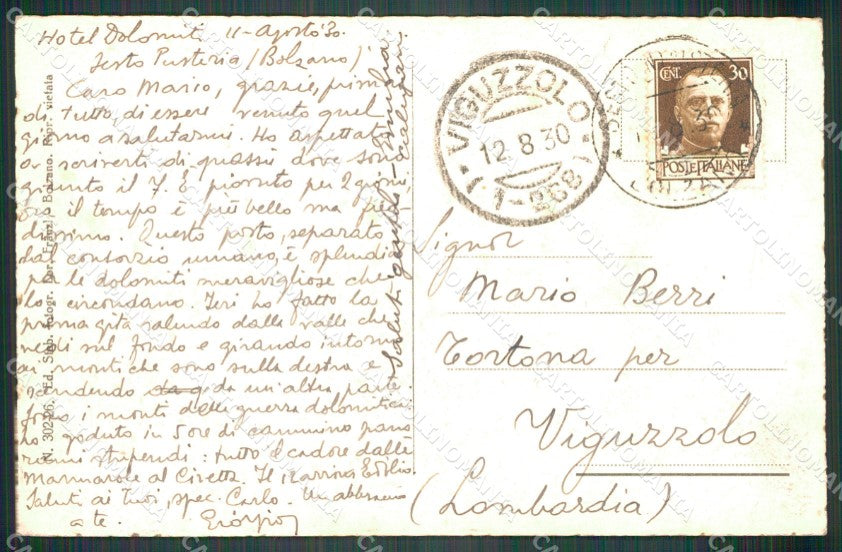 Hotel Dolomiti 11-agosto 30.
Sesto Pusteria (Bolzano)
Caro Mario, grazie, prima
di tutto, di essere venuto quel
giorno a salutarmi. Ho aspettato
a scriverti di quassù dove sono
giunto il 7. È piovuto per 2 giorni
ora il tempo è più bello ma fred
dissimo. Questo posto, separato
dal consorzio umano, è splendido
per le dolomiti meravigliose che
lo circondano. Ieri ho fatto la
prima gita salendo dalla valle che
vedi sul fondo e girando intorno
ai monti che sono sulla destra e
scendendo da un'altra parte.
Sono i monti della guerra dolomitica
ho goduto in 5 ore di cammino pano
rami stupendi: tutto il cadore dalle
Marmarole al Civetta. Il 12 arriva Emilio.
Saluti ai tuoi, spec. Carlo. Un abbraccio
a te. Giorgio
Saluti
N. 302-26. Ed. Stab. fotogr. Bolzano. Ripr. vietata
VIGUZZOLO
12.8.30
1-268
CENT. 30
POSTE ITALIANE
Signor
Mario Berri
Tortona per
Viguzzolo
(Lombardia)
CARTOLINOMANIA